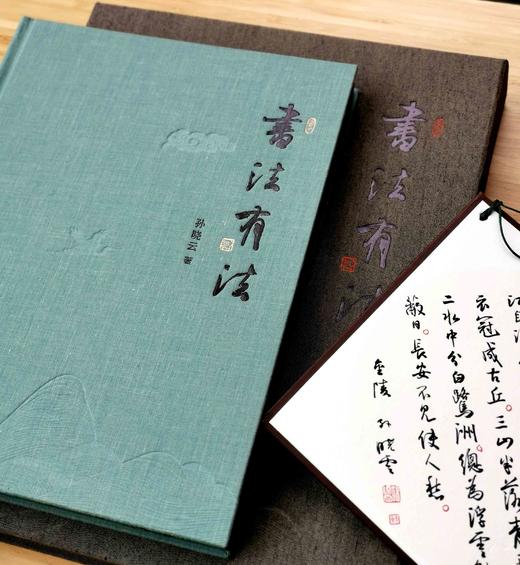 書法有法
孙晓云 著
書法有法
江自流
衣冠成古丘。三山半落青
二水中分白鷺洲。總為浮雲
蔽日。長安不見使人愁。
金陵 孙曉雲